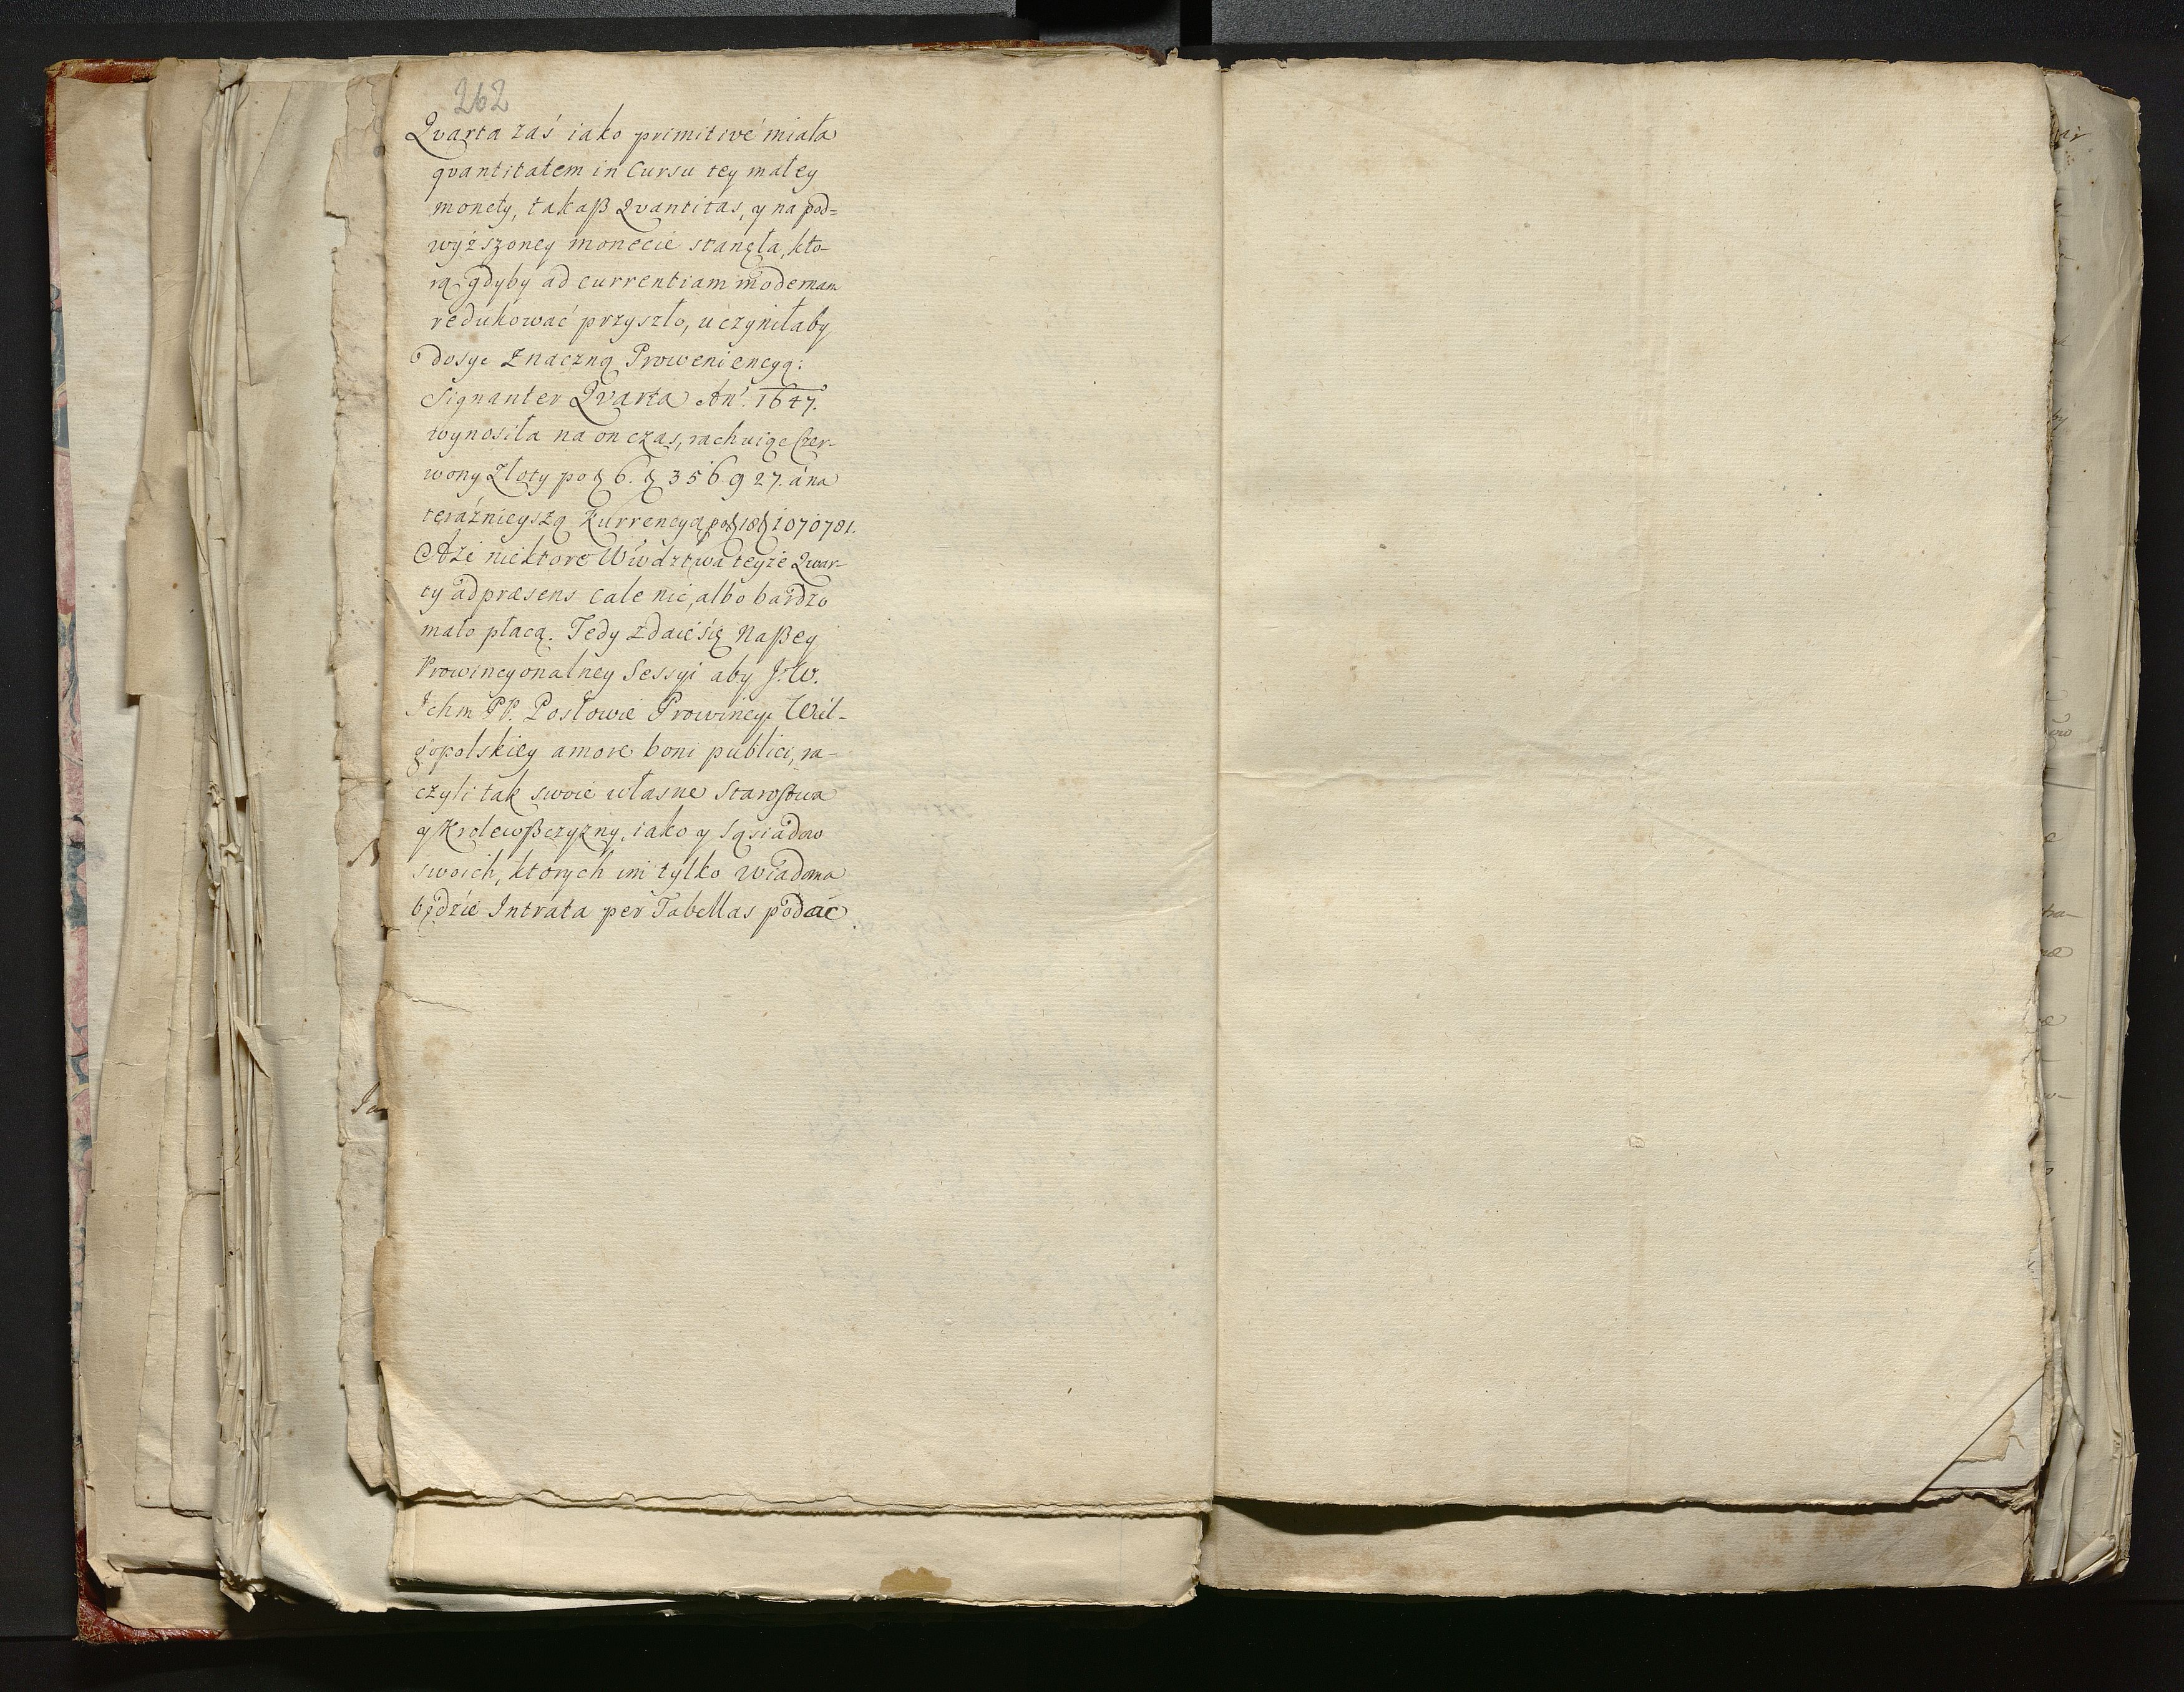 262
Qvarta zaś iako primitivé miała
qvantitatem in Cursu tey małey
monety, takaß Qvantitas, y na pod=
wyższoney monecie stanęła, kto-
rą gdyby ad currentiam modernam
redukować przyszło, uczyniłaby
dosyc znaczną Proweniencyą:
Signanter Qvarta An. 1647.
wynosiła na on czas, rachuiąc Czer-
wony Złoty po 6. 356927. á na
teráźnieyszą Kurrencyą po 18 1070781.
A że niektore Wwdztwa teyże Qwar-
ty ad præsens cale nic, albo bardzo
mało płacą. Tedy zdaie się Naßey
Prowincyonalney Sessyi aby J. W.
Ichm PP. Posłowie Prowincyi Wiel-
gopolskiey amore boni publici, ra-
czyli tak swoie własne Starostwa
y Krolewßczyzny, iako y Sąsiadow
swoich, ktorych im tylko wiadoma
będzie Intrata per Tabellas podać